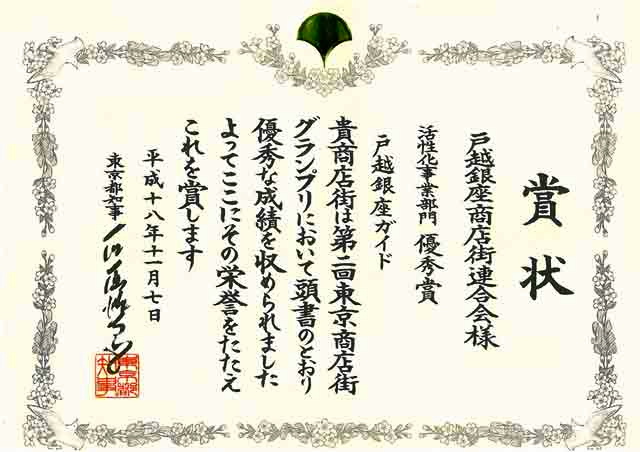 賞状
戸越銀座商店街連合会様
活性化事業部門 優秀賞
戸越銀座ガイド
貴商店街は第二回東京商店街
グランプリにおいて頭書のとおり
優秀な成績を収められました
よってここにその栄誉をたたえ
これを賞します
平成十八年十一月七日
東京都知事
東京都知事